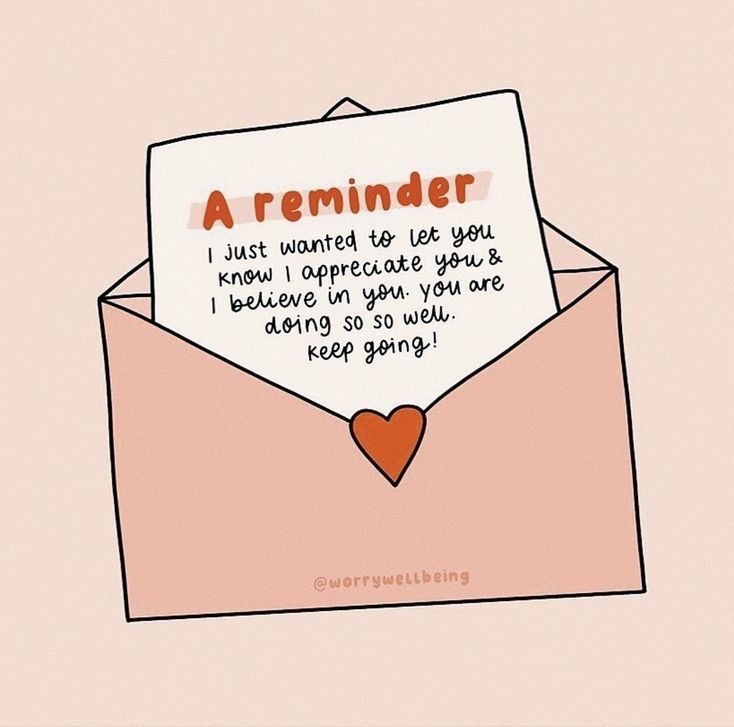 A reminder
I just wanted to let you
know I appreciate you &
I believe in you. you are
doing so so well.
keep going!
@worrywellbeing